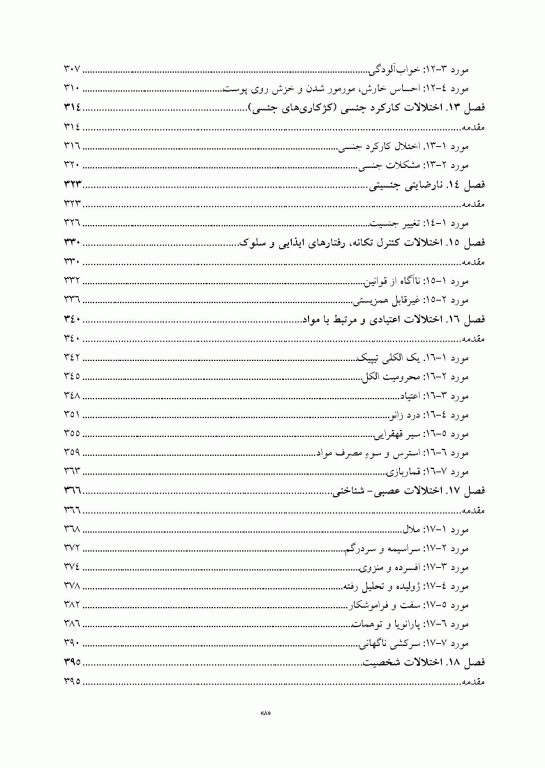 مورد ۳-۱۲: خواب‌آلودگی ۳۰۷
مورد ۴-۱۲: احساس خارش، مورمور شدن و خزش روی پوست ۳۱۰
فصل ۱۳. اختلالات کارکرد جنسی (کژکاری‌های جنسی) ۳۱۴
مقدمه ۳۱۴
مورد ۱-۱۳. اختلال کارکرد جنسی ۳۱۶
مورد ۲-۱۳: مشکلات جنسی ۳۲۰
فصل ۱۴. نارضایتی جنسیتی ۳۲۳
مقدمه ۳۲۳
مورد ۱-۱۴: تغییر جنسیت ۳۲۶
فصل ۱۵. اختلالات کنترل تکانه، رفتارهای ایذایی و سلوک ۳۳۰
مقدمه ۳۳۰
مورد ۱-۱۵: ناآگاه از قوانین ۳۳۲
مورد ۲-۱۵: غیرقابل همزیستی ۳۳۶
فصل ۱۶. اختلالات اعتیادی و مرتبط با مواد ۳۴۰
مقدمه ۳۴۰
مورد ۱-۱۶. یک الکلی تیپیک ۳۴۲
مورد ۲-۱۶: محرومیت الکل ۳۴۵
مورد ۳-۱۶: اعتیاد ۳۴۸
مورد ۴-۱۶: درد زانو ۳۵۱
مورد ۵-۱۶: سیر قهقرایی ۳۵۵
مورد ۶-۱۶: استرس و سوءِ مصرف مواد ۳۵۹
مورد ۷-۱۶: قماربازی ۳۶۳
فصل ۱۷. اختلالات عصبی- شناختی ۳۶۶
مقدمه ۳۶۶
مورد ۱-۱۷: ملال ۳۶۸
مورد ۲-۱۷: سراسیمه و سردرگم ۳۷۲
مورد ۳-۱۷: افسرده و منزوی ۳۷۴
مورد ۴-۱۷: ژولیده و تحلیل رفته ۳۷۸
مورد ۵-۱۷: سفت و فراموشکار ۳۸۲
مورد ۶-۱۷: پارانویا و توهمات ۳۸۶
مورد ۷-۱۷: سرکشی ناگهانی ۳۹۰
فصل ۱۸. اختلالات شخصیت ۳۹۵
مقدمه ۳۹۵
«۸»